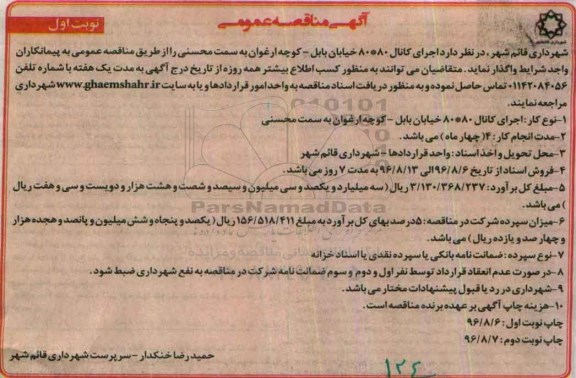 آگهی مناقصه عمومی
نوبت اول
شهرداری قائم شهر، در نظر دارد اجرای کانال 80*80 خیابان بابل - کوچه ارغوان به سمت محسنی را از طریق مناقصه عمومی به پیمانکاران
واجد شرایط واگذار نماید. متقاضیان می توانند به منظور کسب اطلاع بیشتر همه روزه از تاریخ درج آگهی به مدت یک هفته با شماره تلفن
01142084056 تماس حاصل نموده و به منظور دریافت اسناد مناقصه به واحد امور قراردادها و یا به سایت www.ghaemshahr.ir شهرداری
مراجعه نمایند.
1-نوع کار: اجرای کانال 80*80 خیابان بابل - کوچه ارغوان به سمت محسنی
2-مدت انجام کار: 4( چهار ماه) می باشد.
3-محل تحویل و اخذ اسناد: واحد قراردادها - شهرداری قائم شهر
4-فروش اسناد از تاریخ 96/8/6 الی 96/8/13 به مدت 7 روز می باشد.
5-مبلغ کل برآورد: 3/130/368/237 ریال ( سه میلیارد و یکصد و سی میلیون و سیصد و شصت و هشت هزار و دویست و سی و هفت ریال
) می باشد.
6-میزان سپرده شرکت در مناقصه: 5درصد بهای کل برآورد به مبلغ 156/518/411 ریال( یکصد و پنجاه و شش میلیون و پانصد و هجده هزار
و چهارصد و یازده ریال) می باشد.
7-نوع سپرده: ضمانت نامه بانکی یا سپرده نقدی یا اسناد خزانه
8-در صورت عدم انعقاد قرارداد توسط نفر اول و دوم و سوم ضمانت نامه شرکت در مناقصه به نفع شهرداری ضبط شود.
9-شهرداری در رد یا قبول پیشنهادات مختار می باشد.
10-هزینه چاپ آگهی بر عهده برنده مناقصه است.
چاپ نوبت اول: 96/8/6
چاپ نوبت دوم: 96/8/7
حمیدرضا خنکدار - سرپرست شهرداری قائم شهر
ParsNamadData